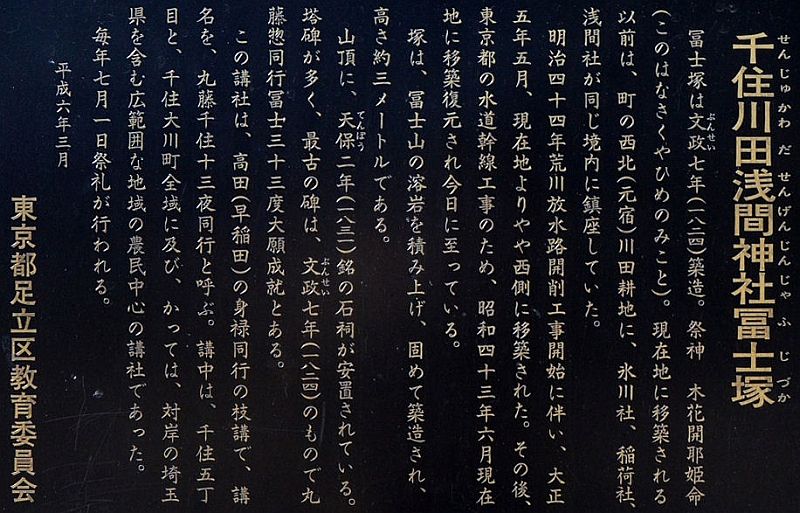 千住川田浅間神社冨士塚
せんじゅかわだせんげんじんじゃふじづか
冨士塚は文政七年(一八二四)築造。祭神 木花開耶姫命
ぶんせい
(このはなさくやひめのみこと)。現在地に移築される
以前は、町の西北(元宿)川田耕地に、氷川社、稲荷社、
浅間社が同じ境内に鎮座していた。
明治四十四年荒川放水路開削工事開始に伴い、大正
五年五月、現在地よりやや西側に移築された。その後、
東京都の水道幹線工事のため、昭和四十三年六月現在
地に移築復元され今日に至っている。
塚は、冨士山の溶岩を積み上げ、固めて築造され、
高さ約三メートルである。
山頂に、天保二年(一八三一)銘の石祠が安置されている。
てんぽう
塔碑が多く、最古の碑は、文政七年(一八二四)のもので丸
ぶんせい
藤惣同行冨士三十三度大願成就とある。
この講社は、高田(早稲田)の身禄同行の枝講で、講
名を、丸藤千住十三夜同行と呼ぶ。講中は、千住五丁
目と、千住大川町全域に及び、かっては、対岸の埼玉
県を含む広範囲な地域の農民中心の講社であった。
毎年七月一日祭礼が行われる。
平成六年三月
東京都足立区教育委員会